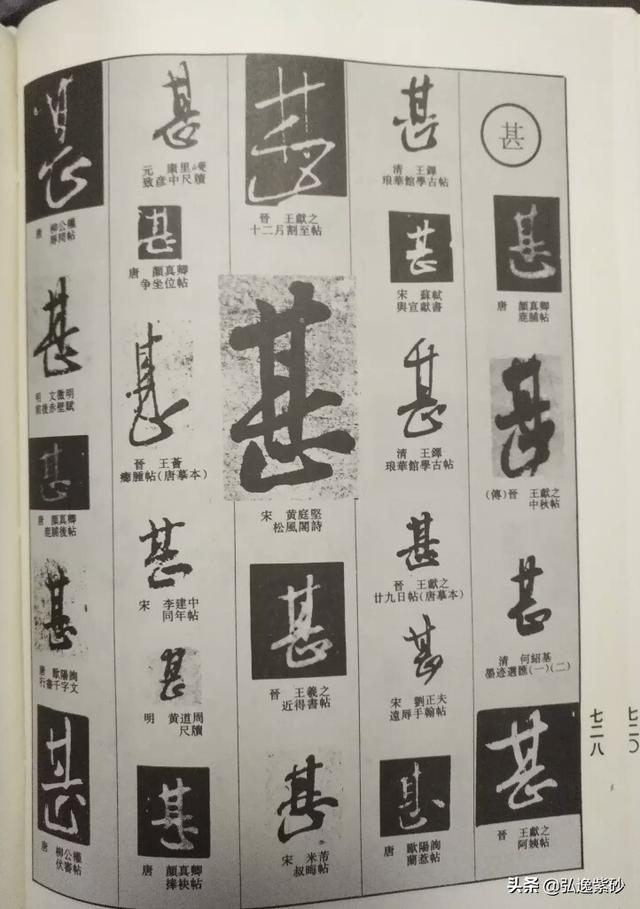 甚
甚
唐 顏真卿
鹿脯帖
甚
(傳)晉 王獻之
中秋帖
甚
清 何紹基
墨迹選匯(一)(二)
甚
晉 王獻之
阿姨帖
甚
清 王鐸
琅華館學古帖
甚
宋 蘇軾
與宣獻書
甚
清 王鐸
琅華館學古帖
甚
晉 王獻之
廿九日帖(唐摹本)
甚
宋 劉正夫
遠辱手翰帖
甚
唐 歐陽詢
蘭惹帖
甚
晉 王獻之
十二月割至帖
甚
宋 黃庭堅
松風閣詩
甚
晉 王羲之
近得書帖
甚
宋 米芾
叔晦帖
甚
元 康里
致彥中尺牘
甚
唐 顏真卿
争坐位帖
甚
晉 王薈
癤腫帖(唐摹本)
甚
宋 李建中
同年帖
甚
明 黃道周
尺牘
甚
唐 顏真卿
捧袂帖
甚
唐 柳公權
甚
明 文徵明
前後赤壁賦
甚
唐 顏真卿
鹿脯後帖
甚
唐 歐陽詢
行書千字文
甚
唐 柳公權
伏審帖
七二八
七二〇
头条 @弘逸紫砂